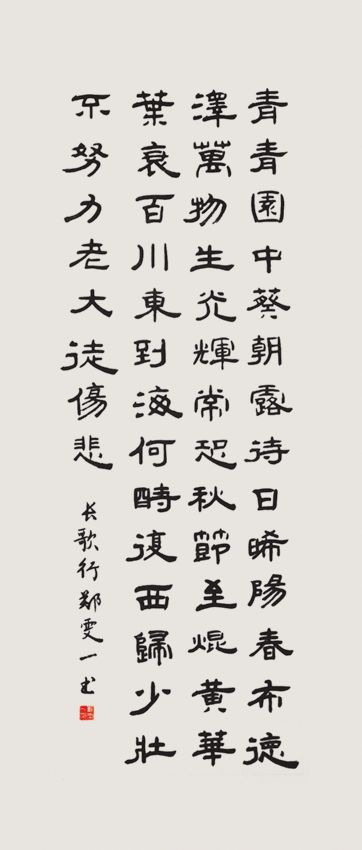 青青園中葵朝露待日晞陽春布德
澤萬物生光輝常恐秋節至焜黃華
葉衰百川東到海何時復西歸少壯
不努力老大徒傷悲
长歌行鄭雯一书